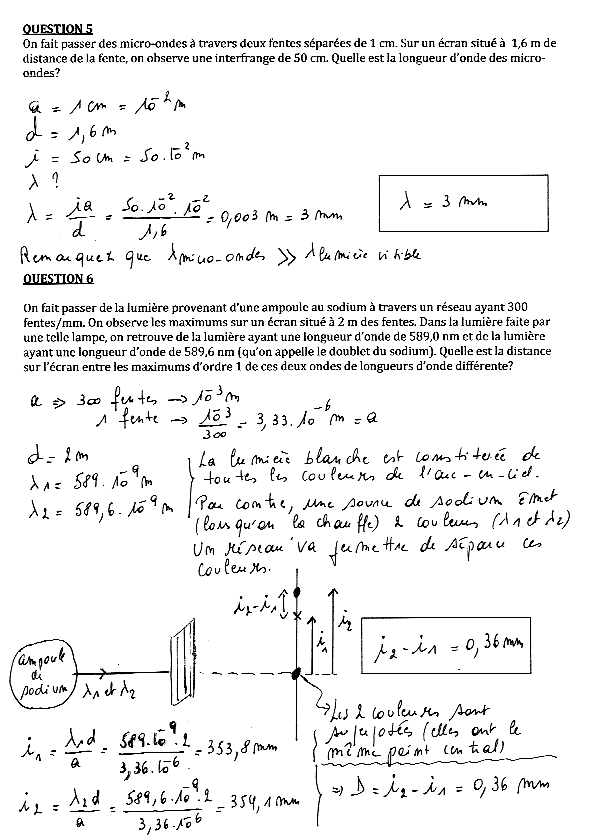 QUESTION 5
On fait passer des micro-ondes à travers deux fentes séparées de 1 cm. Sur un écran situé à 1,6 m de
distance de la fente, on observe une interfrange de 50 cm. Quelle est la longueur d'onde des micro-
ondes?
a = 1 cm = 10⁻² m
d = 1,6 m
i = 50 cm = 50.10⁻² m
λ ?
λ = ia/d = 50.10⁻².10⁻²/1,6 = 0,003 m = 3 mm
λ = 3 mm
Remarquez que λ micro-ondes >> λ lumière visible
QUESTION 6
On fait passer de la lumière provenant d'une ampoule au sodium à travers un réseau ayant 300
fentes/mm. On observe les maximums sur un écran situé à 2 m des fentes. Dans la lumière faite par
une telle lampe, on retrouve de la lumière ayant une longueur d'onde de 589,0 nm et de la lumière
ayant une longueur d'onde de 589,6 nm (qu'on appelle le doublet du sodium). Quelle est la distance
sur l'écran entre les maximums d'ordre 1 de ces deux ondes de longueurs d'onde différente?
a => 300 fentes → 10⁻³ m
1 fente → 10⁻³/300 = 3,33.10⁻⁶ m = a
d = 2m
λ1 = 589.10⁻⁹ m
λ2 = 589,6.10⁻⁹ m
La lumière blanche est constituée de
toutes les couleurs de l'arc-en-ciel.
Par contre, une source de sodium émet
(lorsqu'on la chauffe) 2 couleurs (λ1 et λ2)
Un réseau va permettre de séparer ces
couleurs.
i2-i1
i1
i2
i2 - i1 = 0,36 mm
ampoule
de
sodium
λ1 et λ2
Les 2 couleurs sont
superposées (elles ont le
même point central)
=> D = i2 - i1 = 0,36 mm
i1 = λ1d/a = 589.10⁻⁹.2/3,36.10⁻⁶ = 353,8 mm
i2 = λ2d/a = 589,6.10⁻⁹.2/3,36.10⁻⁶ = 354,1 mm